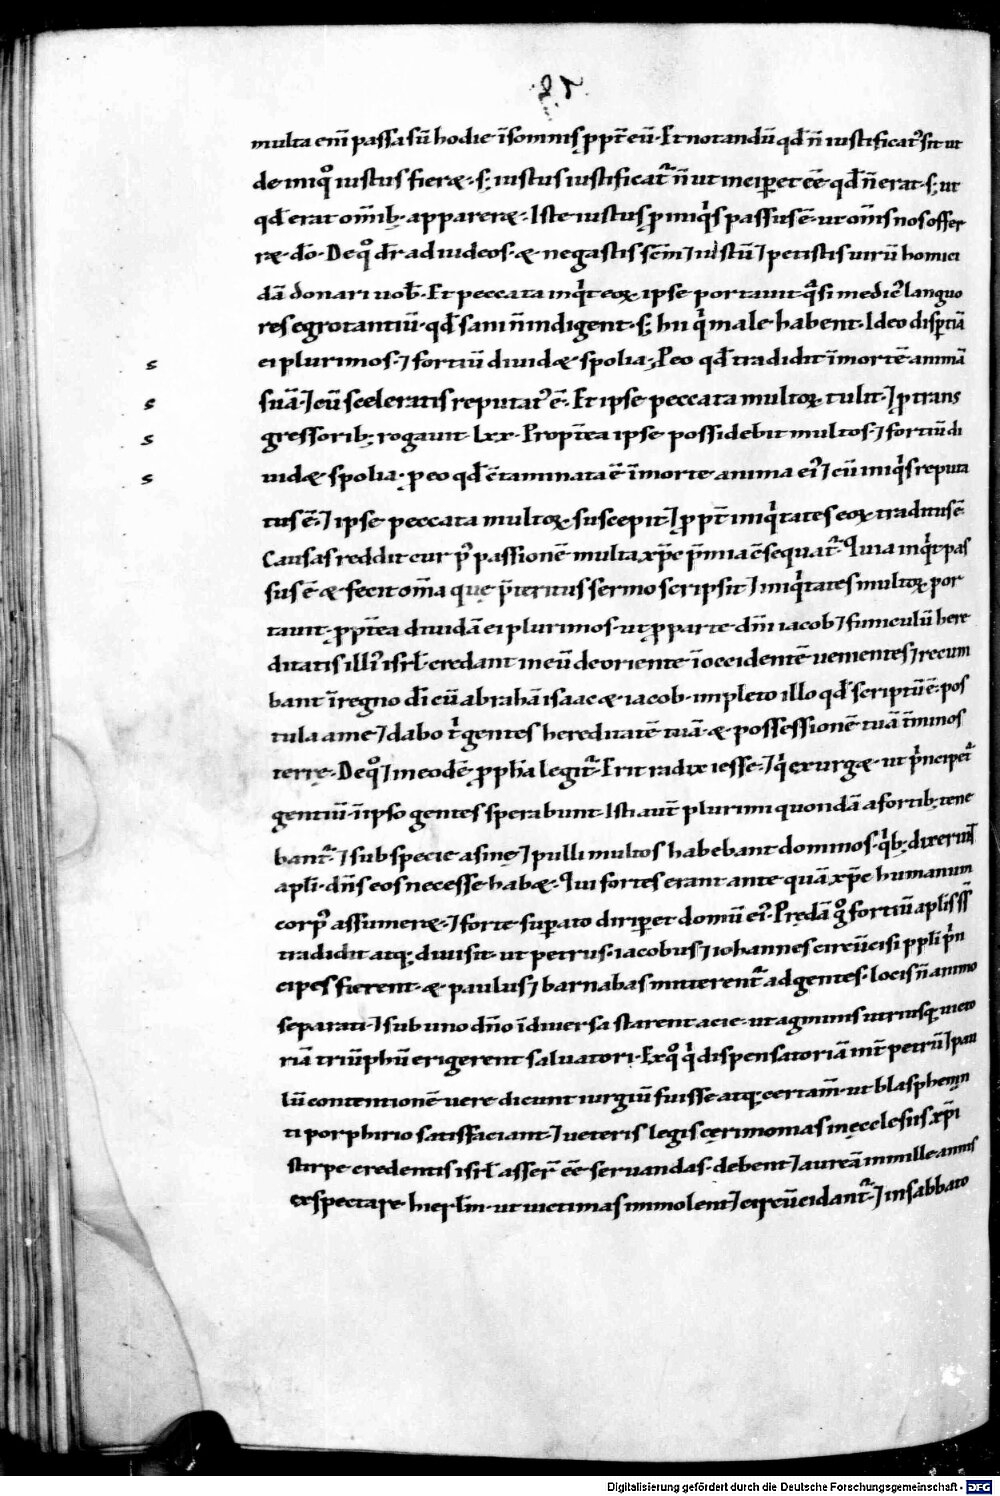 multa eni̅ passa su̅ hodie i̅somnis ꝓpt̅ eu̅ · Et notandu̅ qđ n̅ iustificatꝰ sit ut
de iniqͦ iustus fieret · s; iustus iustificat᷑ n̅ ut inciꝑet e̅e̅ qđ n̅ erat · s; ut
qđ erat om̅ib; appareret · Iste iustus ꝓ iniqͥs passus e̅ · ut om̅s nos offer
ret · d̅o · De qͦ dr̅ ad iudeos · & negastis sc̅m ⁊ iustu̅ ⁊ petistis uiru̅ homici
da̅ donari uob̅ · Et peccata inqͥt eoꝝ ipse portauit qͣsi medicꝰ languo
res egrotantiu̅ · qđ sani n̅ indigent · s; hii qͥ male habent · Ideo dispertia̅
ei plurimos · ⁊ fortiu̅ diuidet spolia · Pro eo qđ tradidit i̅ morte̅ anima̅
sua̅ · ⁊ cu̅ sceleratis reputatꝰ e̅ · Et ipse peccata multoꝝ tulit · ⁊ ꝓ trans
gressorib; rogauit · lxx · Propt̅ea ipse possidebit multos · ⁊ fortiu̅ di
uidet spolia · ꝓ eo qđ c̅taminata e̅ i̅ morte anima eiꝰ ⁊ cu̅ iniqͥs reputa
tus e̅ · ⁊ ipse peccata multoꝝ suscepit · ⁊ ꝓpt̅ iniqͥtates eoꝝ traditus e̅
Causas reddit cur p᷒ passione̅ multa xp̅c p̅mia c̅sequat᷑ · Quia inqͥt pas
sus e̅ & fecit om̅a que p̅teritus sermo scripsit ⁊ iniqͥtates multoꝝ por
tauit · ꝓpt̅ea diuida̅ ei plurimos · ut ꝓ parte dn̅i iacob ⁊ funiculu̅ here
ditatis illiꝰ isrl̅ credant in eu̅ de oriente i̅ occidente̅ uenientes ⁊ recum
bant i̅ regno d̅i cu̅ abraha̅ isaac & iacob · impleto illo qđ scriptu̅ e̅ · pos
tula a me ⁊ dabo tͥ gentes hereditate̅ tua̅ · & possessione̅ tua̅ t̅minos
terrę · De qͦ ⁊ in eode̅ ꝓph̅a legit᷑ · Erit radix iesse · ⁊ qͥ exurget · ut pͥncipet᷑
gentiu̅ · i̅ ipso gentes sperabunt · Isti aut̅ plurimi quonda̅ a fortib; tene
bant᷑ · ⁊ sub specie asinę ⁊ pulli multos habebant dominos · qͥb; dixerunt
apl̅i · dn̅s eos necesse habet · Qui fortes erant ante qua̅ xp̅c humanum
corpꝰ assumeret · ⁊ forte suꝑato diriꝑet domu̅ eiꝰ · Preda̅ gͦ fortiu̅ apl̅is s̅s̅
tradidit atq; diuisit · ut petrus · iacobus ⁊ iohannes circu̅cisi ppl̅i pͥn
cipes fierent · & paulus ⁊ barnabas mitterent᷑ ad gentes · locis n̅ animo
separati · ⁊ sub uno dn̅o i̅ diuersa starent acie · ut agminis utriusq; uicto
ria̅ triu̅phu̅ erigerent saluatori · Ex qͦ qͥ dispensatoria̅ int̅ petru̅ ⁊ pau
lu̅ contentione̅ uere dicunt iurgiu̅ fuisse atq; certam̅ · ut blasphemi̅
ti porphirio satisfaciant · ⁊ ueteris legis cęrimonias in ęcclesiis xp̅i
stirpe credentis isrl̅ asser̅ e̅e̅ seruandas · debent ⁊ aurea̅ in mille annis
exspectare hierl̅m · ut uictimas immolent ⁊ circu̅cidant᷑ · ⁊ in sabbato
Digitalisierung gefördert durch die Deutsche Forschungsgemeinschaft - DFG